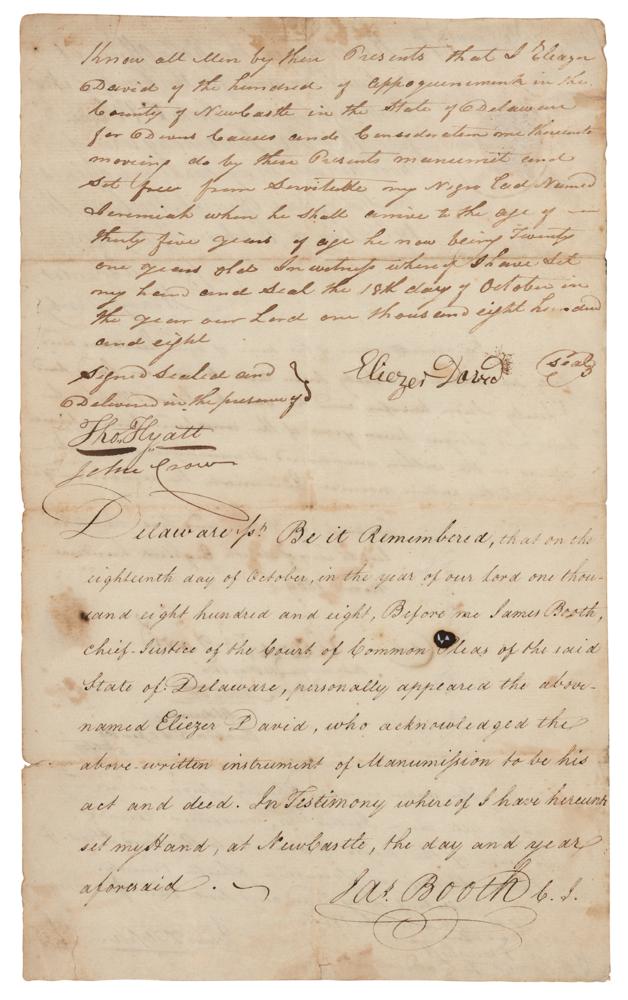 Know all Men by these Presents that I Eliezer
David of the hundred of Appoquinemink in the
County of NewCastle in the State of Delaware
for Divers Causes and Consideration me thereunto
moving do by these Presents manumit and
Set free from Servitude my Negro Lad Named
Jeremiah when he shall arrive to the age of
thirty five years of age he now being Twenty
one years old In witness whereof I have Set
my hand and Seal the 18th day of October in
the year our Lord one thousand eight hundred
and eight
Signed Sealed and
Delivered in the presence of
Eliezer David (seal)
Tho. Hyatt
John Crow
Delaware ss. Be it Remembered, that on the
eighteenth day of October, in the year of our Lord one thou-
sand eight hundred and eight, Before me James Booth,
chief-Justice of the Court of Common Pleas of the said
State of Delaware, personally appeared the above-
named Eliezer David, who acknowledged the
above-written instrument of Manumission to be his
act and deed. In Testimony whereof I have hereunto
set my Hand, at NewCastle, the day and year
aforesaid.
Jas. Booth C. J.